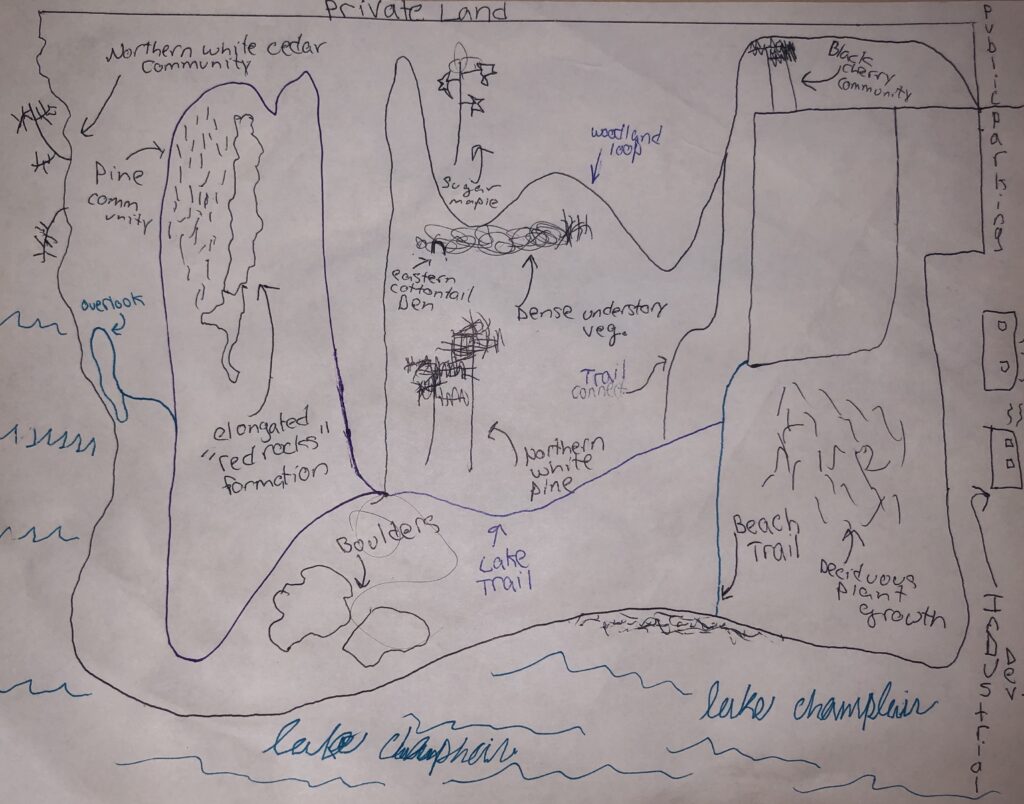 Private Land
Public Parking
Northern white cedar
community
Black
cherry
community
Pine
comm
unity
woodland
loop
Sugar
maple
overlook
eastern
cottontail
Den
Dense understory
veg.
Trail
connect.
"elongated
"red rocks"
formation
Northern
white
pine
Boulders
Lake
Trail
Beach
Trail
Deciduous
plant
growth
Dev
lake champlain
lake champlain